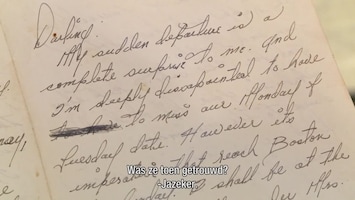 Darling,
My sudden departure is a
complete surprise to me. And
I'm deeply disappointed to have
to miss our Monday &
Tuesday date. However its
imperative that reach Boston
shall be at the
Was ze toen getrouwd?
-Jazeker.